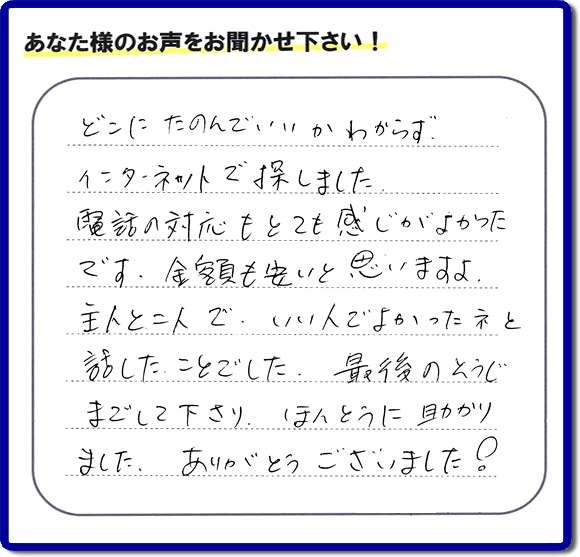 あなた様のお声をお聞かせ下さい！
どこに たのんでいいか わからず.
インターネットで 探しました.
電話の対応もとても感じがよかった
です. 金額も安いと思いますよ.
主人と二人で. いい人でよかったネと
話した ことでした. 最後のそうじ
までして下さり. ほんとうに助かり
ました. ありがとう ございました!